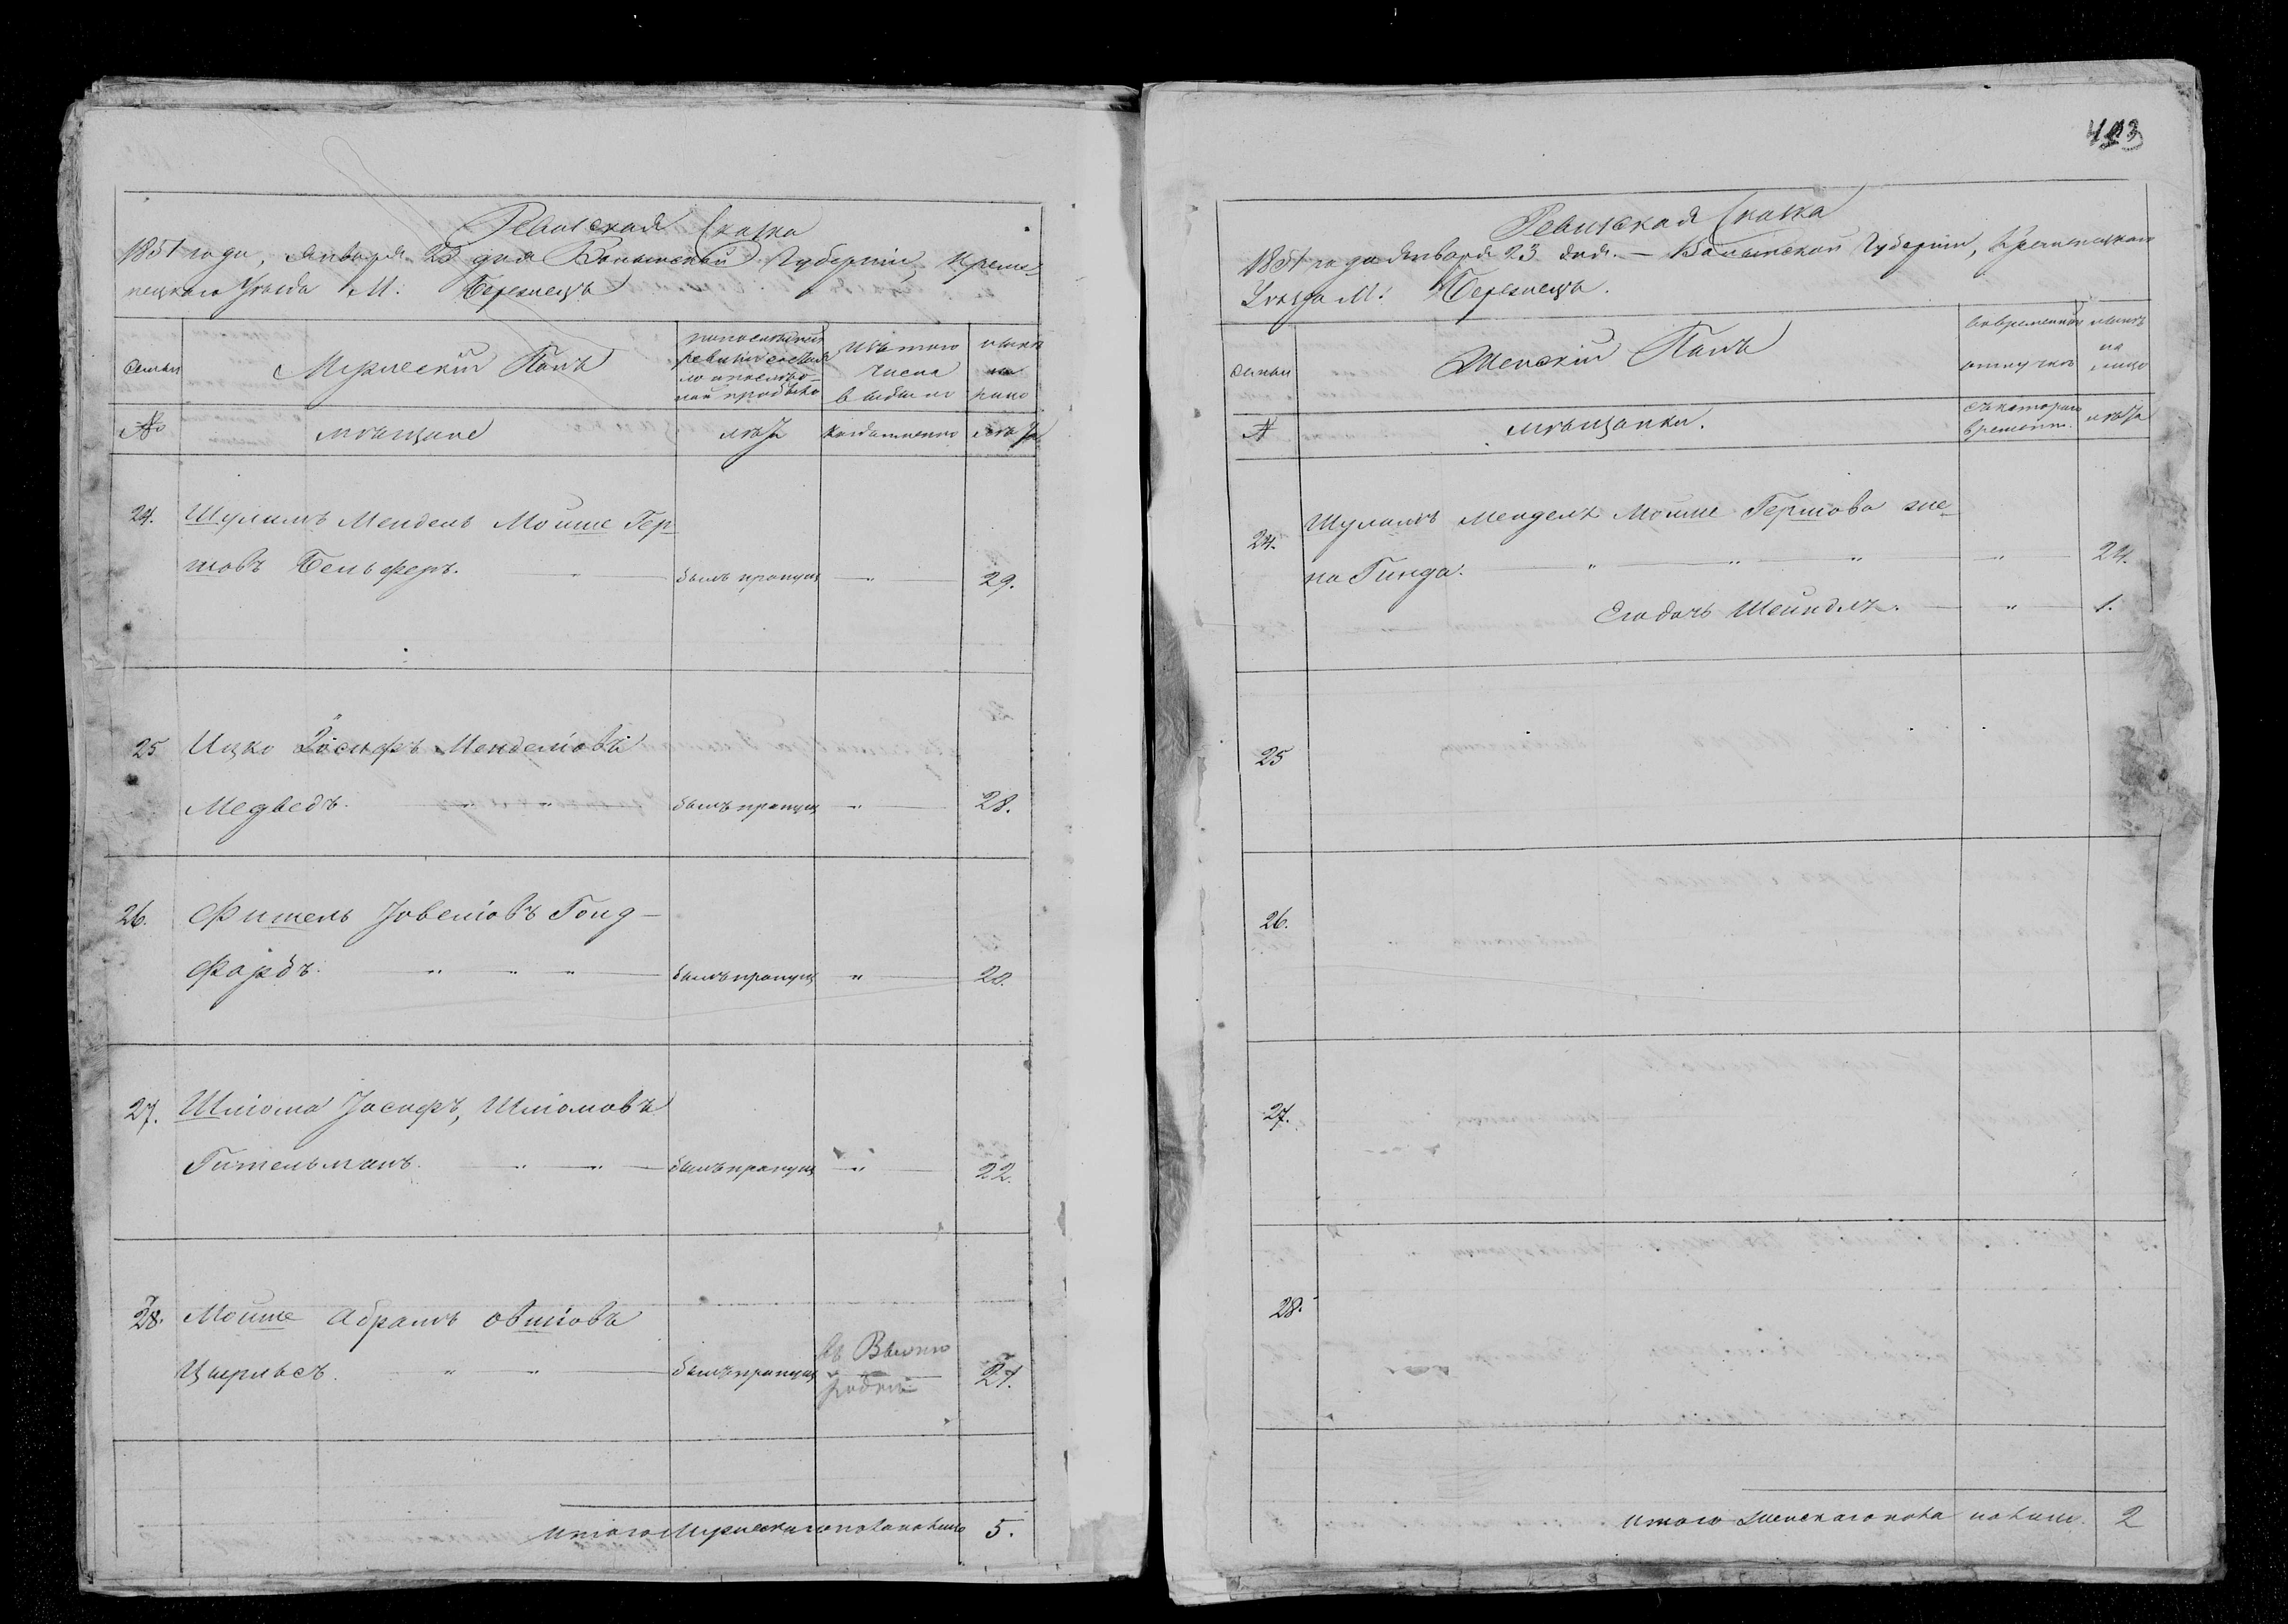 Ревизская Сказка
1851 года, Января 23 дня Волынской Губернiи, Креме-
нецкаго Уезда М. Бережецъ
Семьи
Мужескiй Полъ
по последней
ревизiи состоя
ло и после то-
го прибыло
Изъ того
числа
выбыло
ныне
на
лицо
№
мещане
лета
когда именно
лета
24. Шулимъ Мендель Мойше Гер-
шовъ Бельферъ. былъ пропущ " 29.
25 Ицко Iосифъ Менделiовъ
Медведъ. " " былъ пропущ " 28.
26. Фишель Iовелiовъ Гонд-
Фарбъ. " " " былъ пропущ " 20.
27. Шлiома Iосифъ, Шлiомовъ
Гительманъ. " " былъ пропущ " 22.
28. Мойше Абрамъ Овшiовъ
Цырлесъ. " " былъ пропущ 27.
итого мужескаго пола налицо 5.
433
Ревизская Сказка
1851 года Января 23 дня. — Волынской Губернiи, Кременецкаго
Уезда М. Бережеца.
Семьи
Женскiй Полъ
во временной
отлучке
ныне
на
лицо
№
мещанки.
съ котораго
времени.
лета
24. Шулимъ Мендель Мойше Гершова же-
на Гинда. " " " " 24.
Его дочь Шейндля. " 1.
25
26.
27.
28.
итого женскаго пола налицо. 2